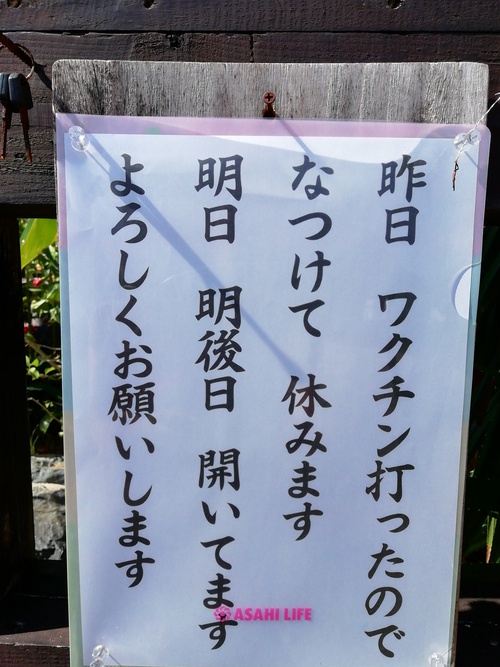 昨日　ワクチン打ったので
なつけて　休みます
明日　明後日　開いてます
よろしくお願いします
ASAHI LIFE